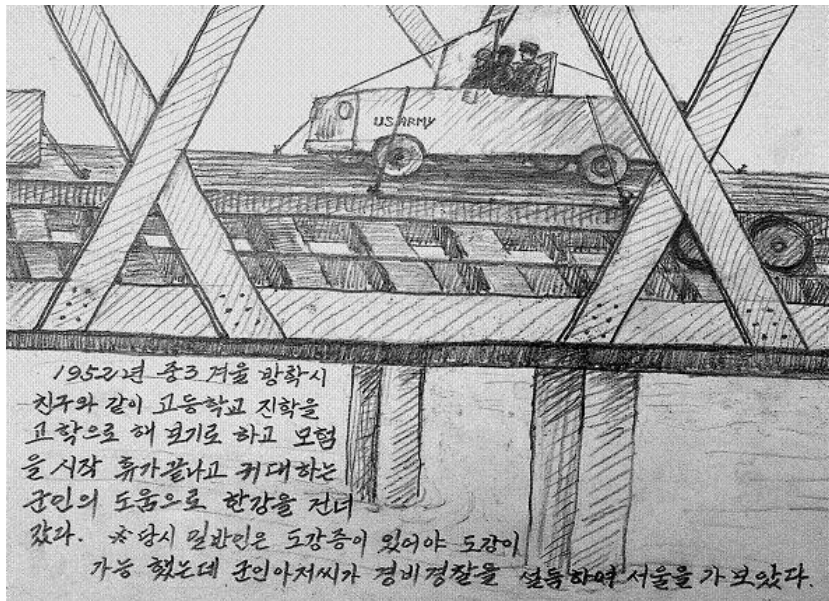 US ARMY
1952년 중3 겨울 방학시
친구와 같이 고등학교 진학을
고학으로 해 보기로 하고 모험
을 시작 휴가끝나고 귀대하는
군인의 도움으로 한강을 건너
갔다. ※당시 일반인은 도강증이 있어야 도강이
가능 했는데 군인아저씨가 경비경찰을 설득하여 서울을 가 보았다.